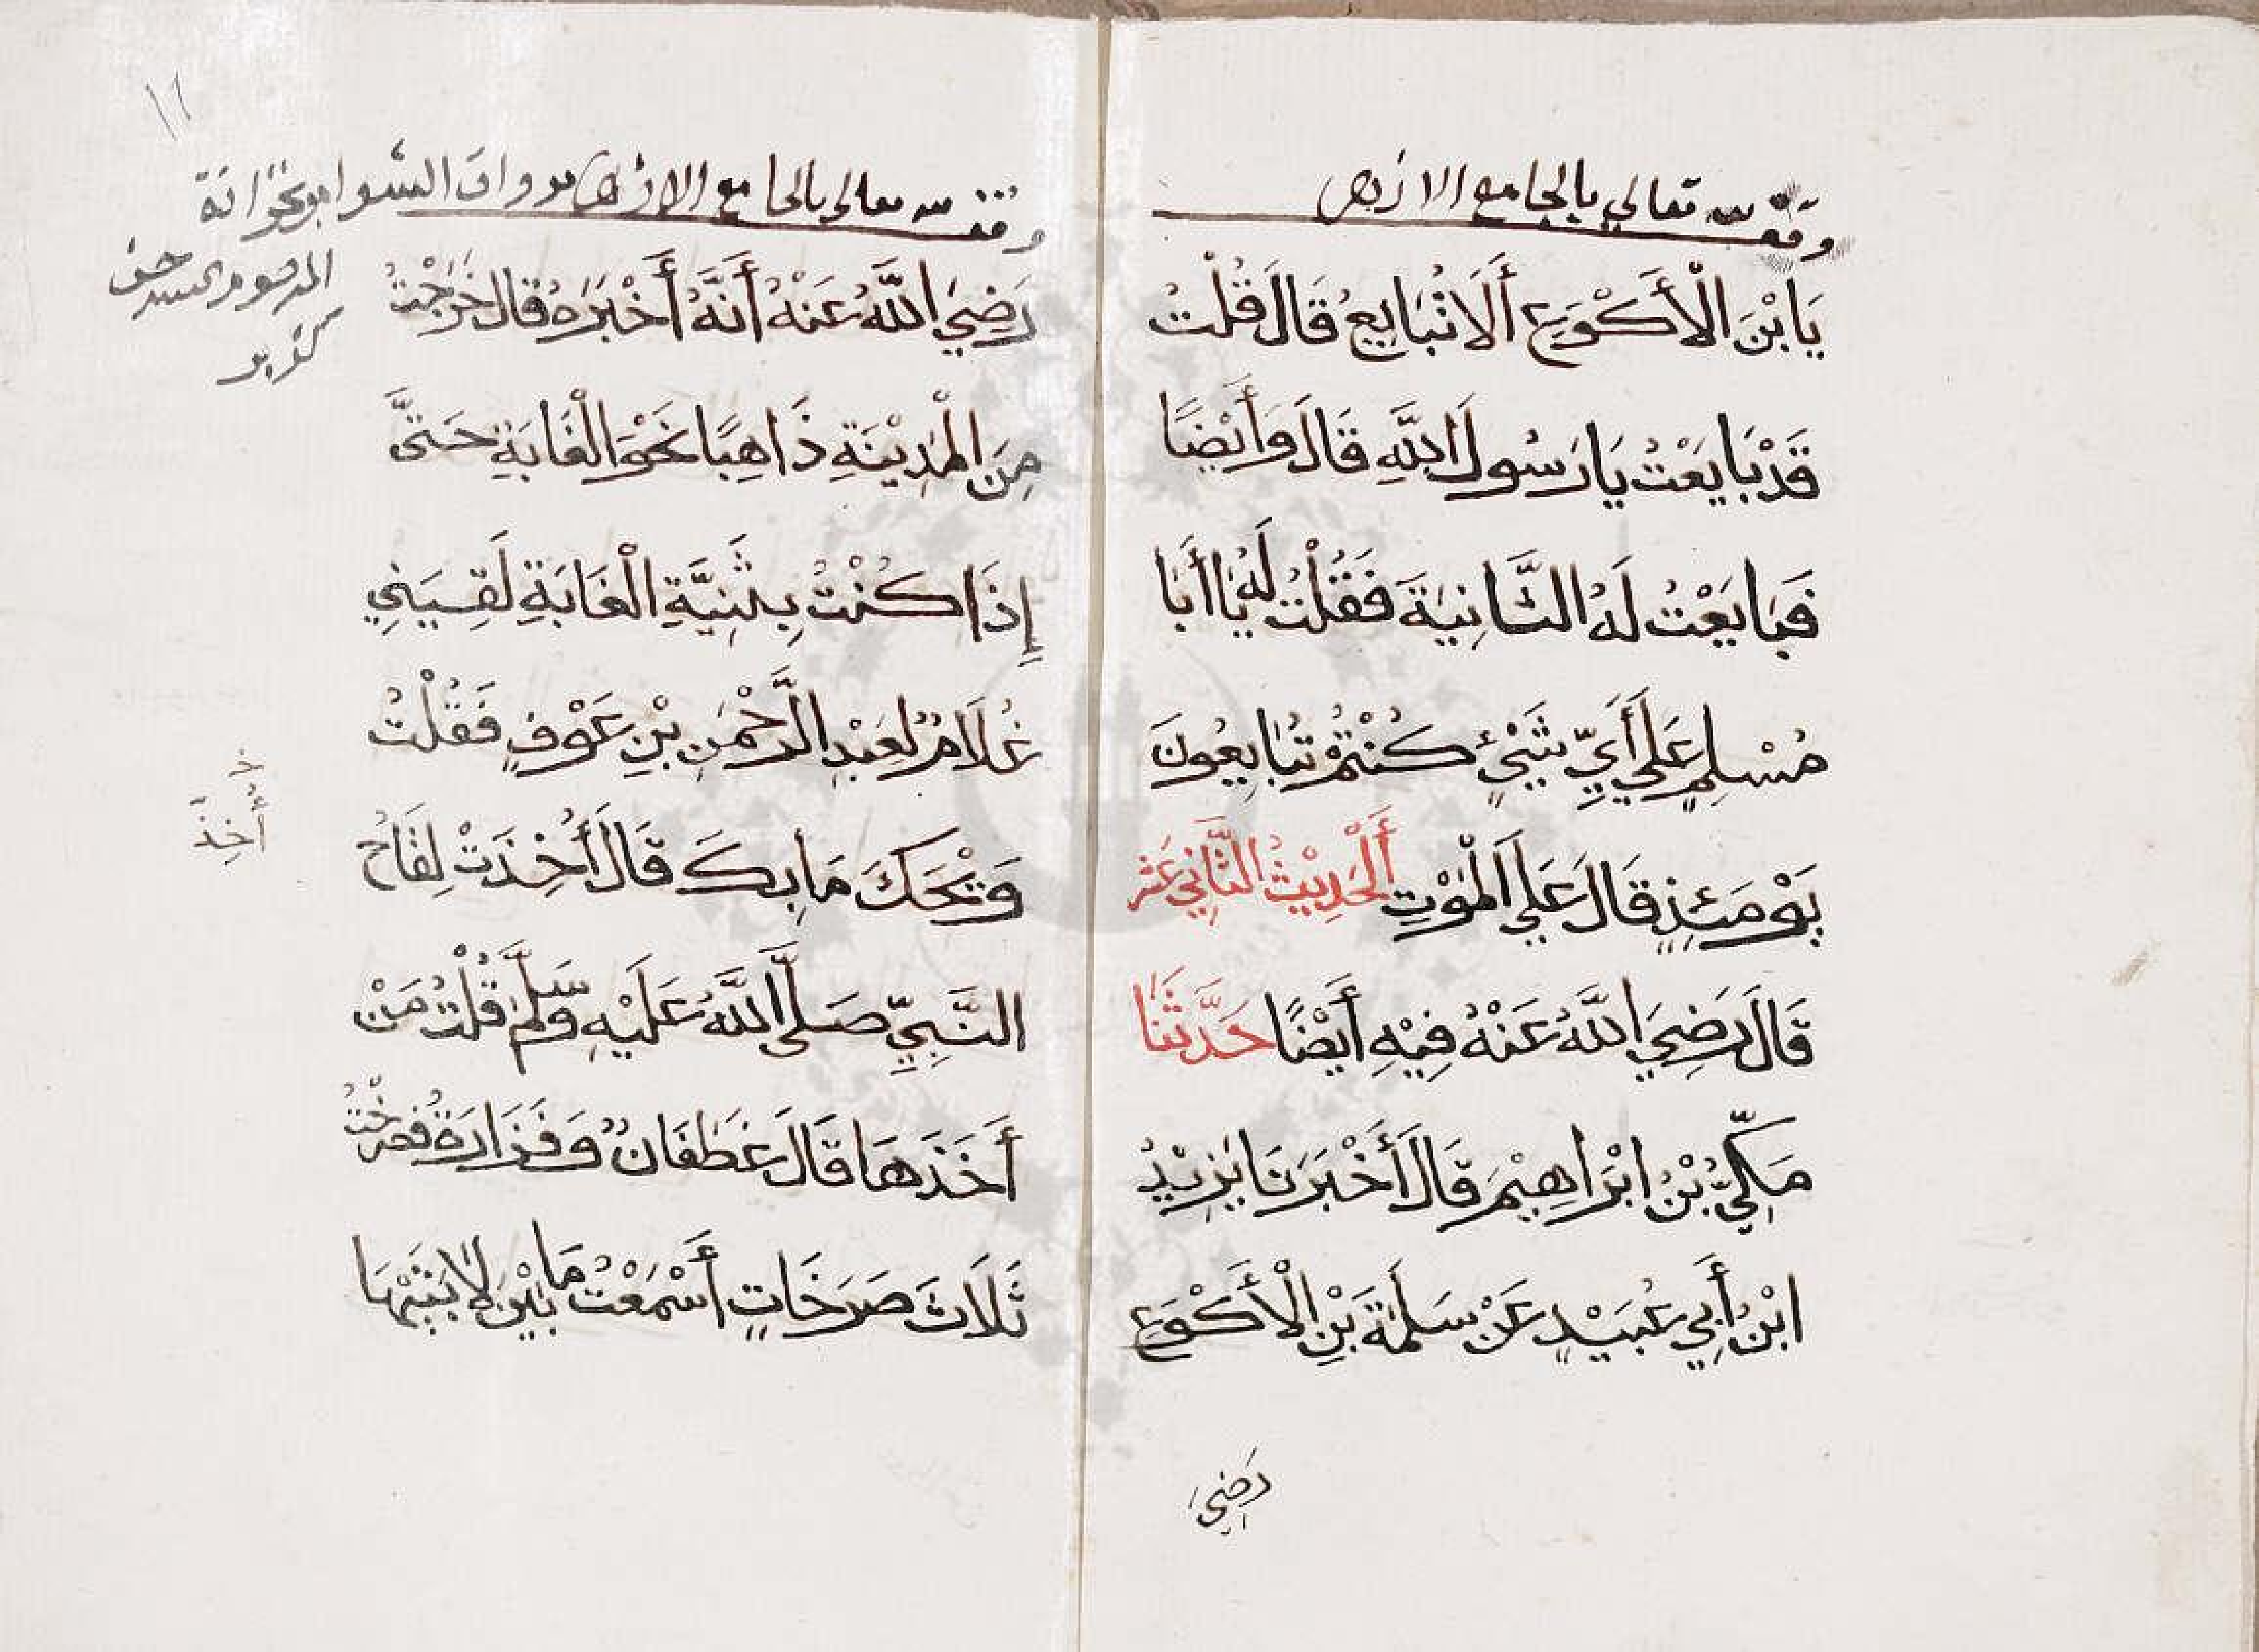 وقف لله تعالي بالجامع الازهر
يَا بْنَ الْأَكْوَعِ أَلَا تُبَايِعُ قَالَ قُلْتُ
قَدْ بَايَعْتُ يَا رَسُولَ اللَّهِ قَالَ وَأَيْضًا
فَبَايَعْتُ لَهُ الثَّانِيَةَ فَقُلْتُ لَهُ يَا أَبَا
مُسْلِمٍ عَلَي أَيِّ شَيْءٍ كُنْتُمْ تُبَايِعُونَ
يَوْمَئِذٍ قَالَ عَلَي الْمَوْتِ أَلْحَدِيْثُ الثَّانِي عَشَر
قَالَ رَضِيَ اللَّهُ عَنْهُ فِيْهِ أَيْضًا حَدَّثَنَا
مَكِّيُّ بْنُ ابْرَاهِيْمَ قَالَ أَخْبَرَنَا يَزِيْدُ
ابْنُ أَبِي عُبَيْدٍ عَنْ سَلَمَةَ بْنِ الْأَكْوَعِ
رَضِيَ
١٢
وقف لله تعالى بالجامع الازهر برواق الشوام بخزانة
المرحوم السيد حسن
رَضِيَ اللَّهُ عَنْهُ أَنَّهُ أَخْبَرَهُ قَالَ خَرَجْتُ
مِنَ الْمَدِيْنَةِ ذَاهِبًا نَحْوَ الْغَابَةِ حَتَّى
إِذَا كُنْتُ بِثَنِيَّةِ الْغَابَةِ لَقِيَنِي
غُلَامٌ لِعَبْدِ الرَّحْمٰنِ بْنِ عَوْفٍ فَقُلْتُ
وَيْحَكَ مَا بِكَ قَالَ أُخِذَتْ لِقَاحُ
خ
أُخِذَ
النَّبِيِّ صَلَّى اللَّهُ عَلَيْهِ وَسَلَّمَ قُلْتُ مَنْ
أَخَذَهَا قَالَ غَطَفَانُ وَفَزَارَةُ فَصَرَخْتُ
ثَلَاثَ صَرَخَاتٍ أَسْمَعْتُ مَا بَيْنَ لَابَتَيْهَا